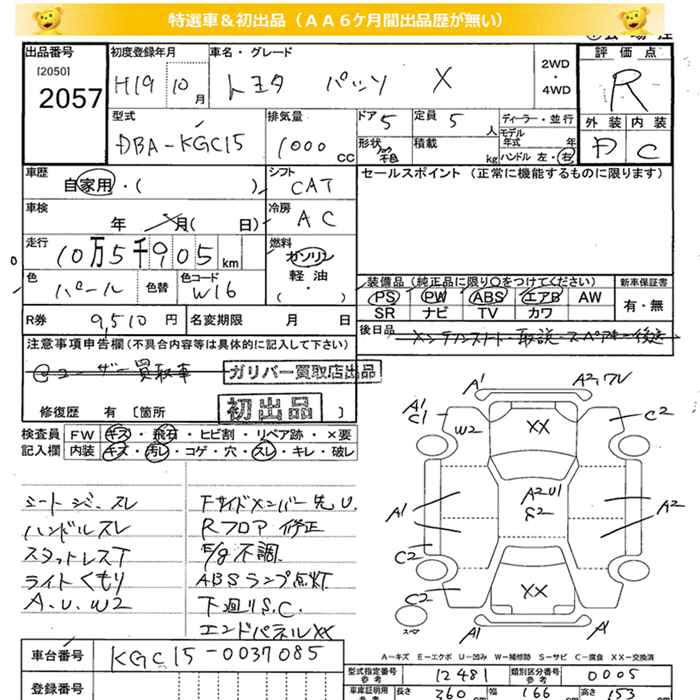 特選車＆初出品（ＡＡ６ケ月間出品歴が無い）
出品番号 初度登録年月 車名・グレード 2WD ・ 4WD 評価点
[2050]
2057 H19 10月 トヨタ パッソ X R
型式 排気量 ドア 定員 ディーラー・並行 外装 内装
DBA-KGC15 1000 CC 5 5 人 モデル年式 年 D C
形状 積載 kg ハンドル 左・右
車歴 シフト セールスポイント（正常に機能するものに限ります）
自家用・( ) CAT
車検 冷房
年 月( 日) AC
走行 燃料
10万5千905 km ガソリン
軽油
( ・ )
色 色替 色コード 装備品（純正品に限り○をつけてください） 新車保証書
パール W16 PS PW ABS エアB AW 有・無
SR ナビ TV カワ
R券 9,510円 名変期限 月 日 後日品 メンテナンスノート・取説・スペアキー後送
注意事項申告欄（不具合内容等は具体的に記入して下さい）
@ユーザー買取車 ガリバー買取店出品
修復歴 有 〔箇所 初出品 〕
検査員 FW キズ・飛石・ヒビ割・リペア跡・×要
記入欄 内装 キズ・汚レ・コゲ・穴・スレ・キレ・破レ
シートシミ、スレ Fサイドメンバー先U.
ハンドルスレ Rフロア修正
スタットレスT E/g不調
ライトくもり ABSランプ点灯
A.U.W2 下廻りS.C.
エンドパネルXX
A1 A2,U
A1 C1 W2 XX C2
A2U1
S2
A1 A2
C2
C2 XX
スペア A1 A1
A－キズ E－エクボ U－凹み W－補修跡 S－サビ C－腐食 XX－交換済
車台番号 KGC15-0037085
登録番号
型式指定番号 参考 12481 類別区分番号 参考 0005
車庫証明用 参考 長さ 360 幅 166 高さ 153